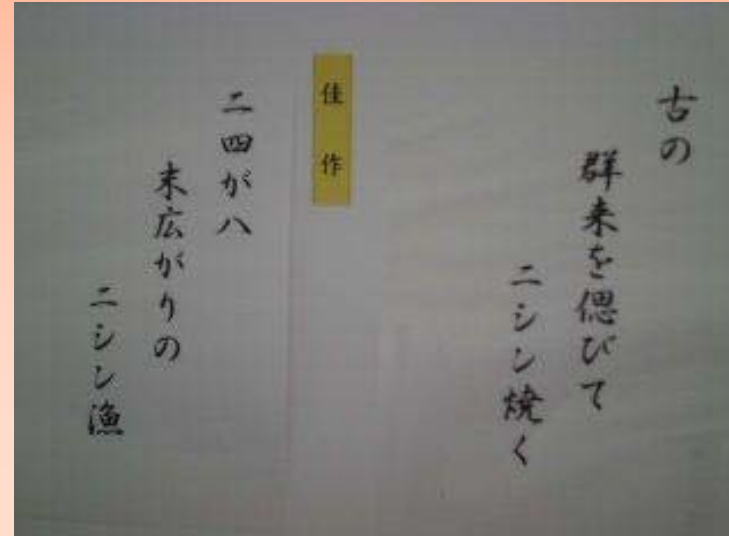 古の
群来を偲びて
ニシン焼く
佳作
二四が八
末広がりの
ニシン漁